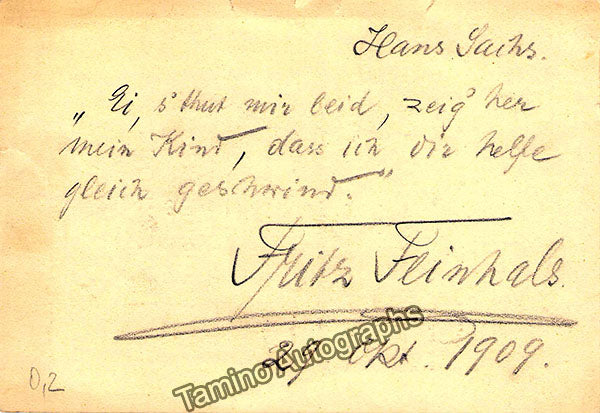 Hans Sachs.
„Ei, s'thut mir leid, zeig' her
mein Kind, dass ich dir helfe
gleich geschwind."
Fritz Feinhals.
29 Okt. 1909.
Tamino Autographs
0,2